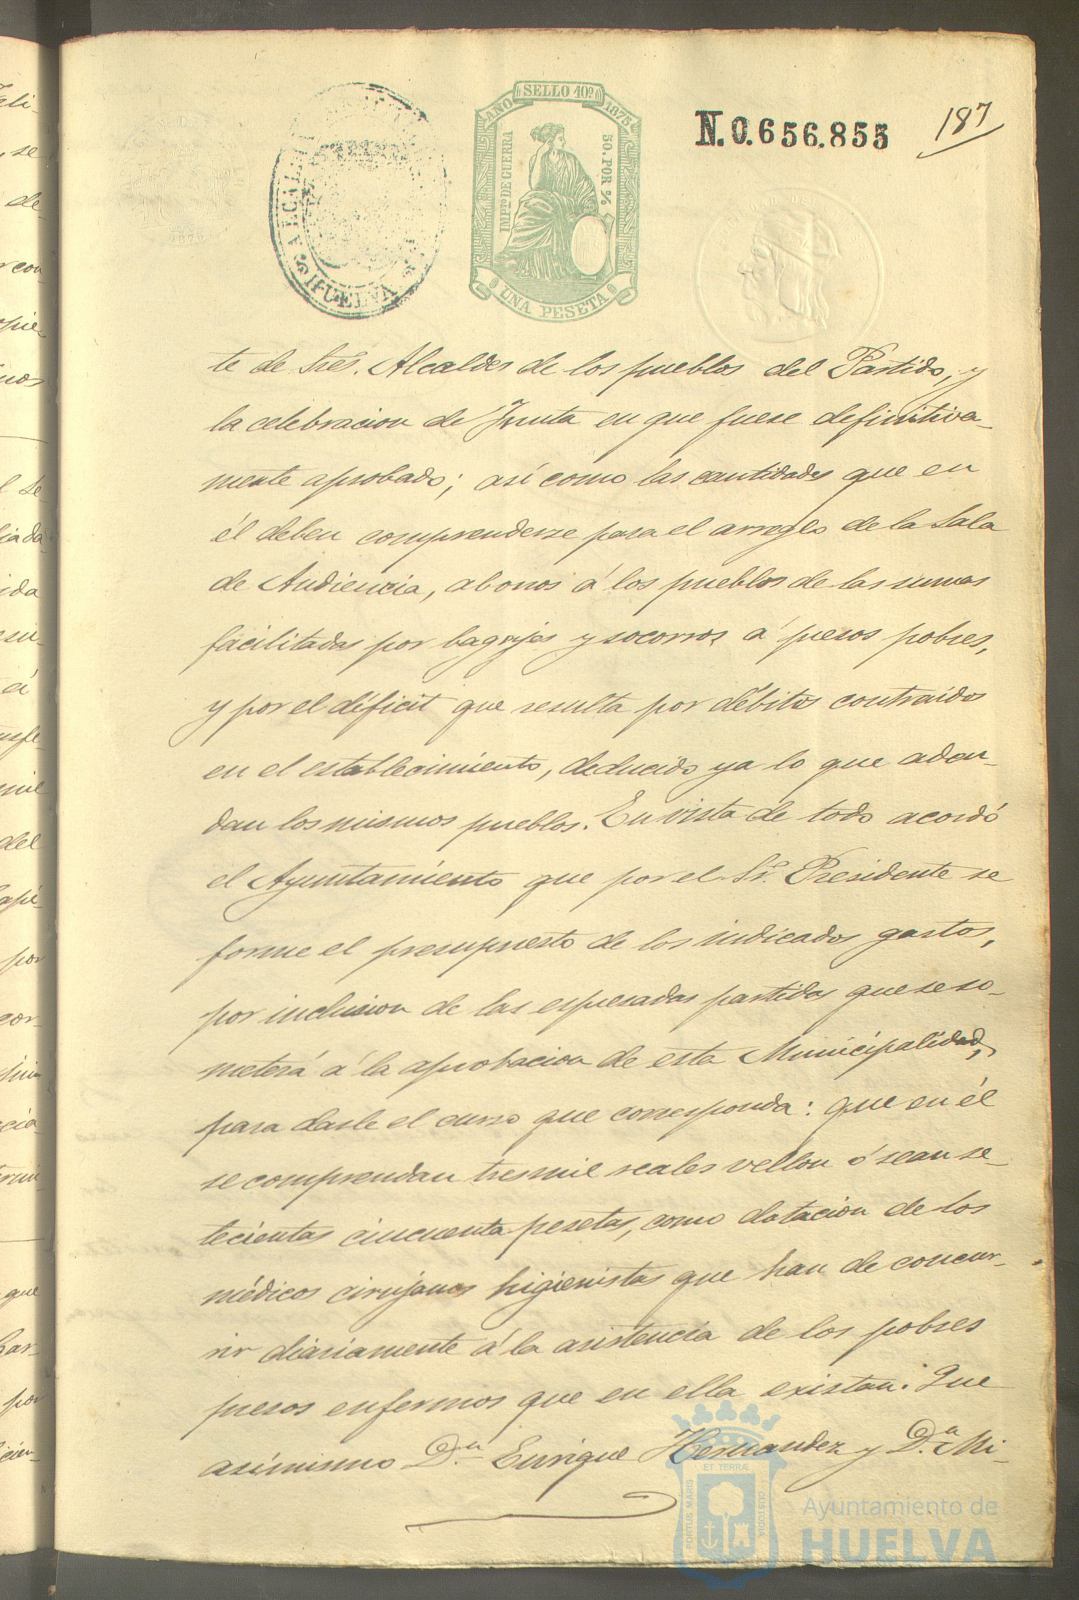 AÑO SELLO 10º 1875
IMPTO DE GUERRA
50. POR %
UNA PESETA
ALCAL
HUELVA
N.0.656.855
187
te de Sres. Alcaldes de los pueblos del Partido, y
la celebracion de Junta en que fuese definitiva-
mente aprobado; así como las cantidades que en
él deben comprenderse para el arreglo de la Sala
de Audiencia, abonos á los pueblos de las sumas
facilitadas por bagajes y socorros á presos pobres,
y por el déficit que resulta por débitos contraidos
en el establecimiento, deducido ya lo que adeu-
dan los mismos pueblos. En vista de todo acordó
el Ayuntamiento que por el Sr. Presidente se
forme el presupuesto de los indicados gastos,
por inclusion de las espresadas partidas que se so-
meterá á la aprobacion de esta Municipalidad,
para darle el curso que corresponda: que en él
se comprendan tres mil reales vellon ó sean se-
tecientas cincuenta pesetas, como dotacion de los
médicos cirujanos higienistas que han de concur-
rir diariamente á la asistencia de los pobres
presos enfermos que en ella existan. Que
asimismo D.n Enrique Hernandez y D.n Mi-
PORTUS MARIS ET TERRÆ CUSTODIA
Ayuntamiento de
HUELVA